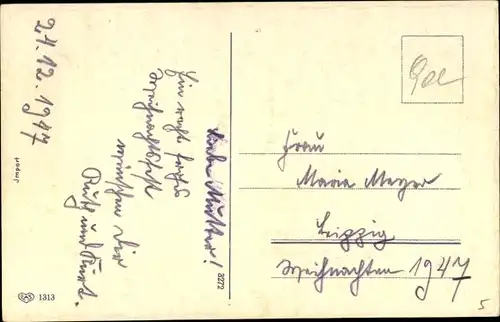 24.12.1947
Liebe Mutter!
Ein recht frohes
Weihnachtsfest
wünschen Dir
Ruth und Kurt.
Frau
Maria Meyer
Leipzig
Weihnachten 1947
Import
1313
3272
5